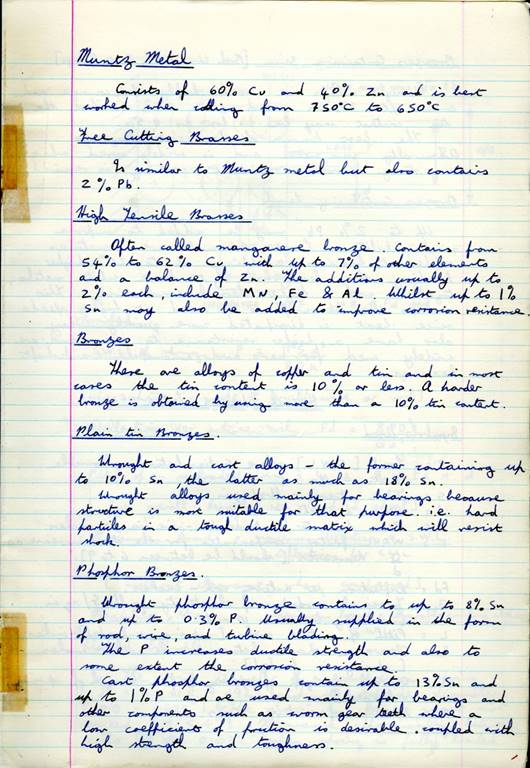 Muntz Metal
Consists of 60% Cu and 40% Zn and is best
worked when cooling from 750°C to 650°C
Free Cutting Brasses
Is similar to Muntz metal but also contains
2% Pb.
High Tensile Brasses
Often called manganese bronze. Contains from
54% to 62% Cu, with up to 7% of other elements
and a balance of Zn. The additions usually up to
2% each, include MN, Fe & Al. Whilst up to 1%
Sn may also be added to improve corrosion resistance.
Bronzes
These are alloys of copper and tin and in most
cases the tin content is 10% or less. A harder
bronze is obtained by using more than a 10% tin content.
Plain tin Bronzes.
Wrought and cast alloys – the former containing up
to 10% Sn, the latter as much as 18% Sn.
Wrought alloys used mainly for bearings because
structure is most suitable for that purpose. i.e. hard
particles in a tough ductile matrix which will resist
shock.
Phosphor Bronzes.
Wrought phosphor bronze contains to up to 8% Sn
and up to 0.3% P. Usually supplied in the form
of rod, wire, and turbine blading.
The P increases ductile strength and also to
some extent the corrosion resistance.
Cast phosphor bronzes contain up to 13% Sn and
up to 1% P and are used mainly for bearings and
other components such as worm gear teeth where a
low coefficient of friction is desirable, coupled with
high strength and toughness.